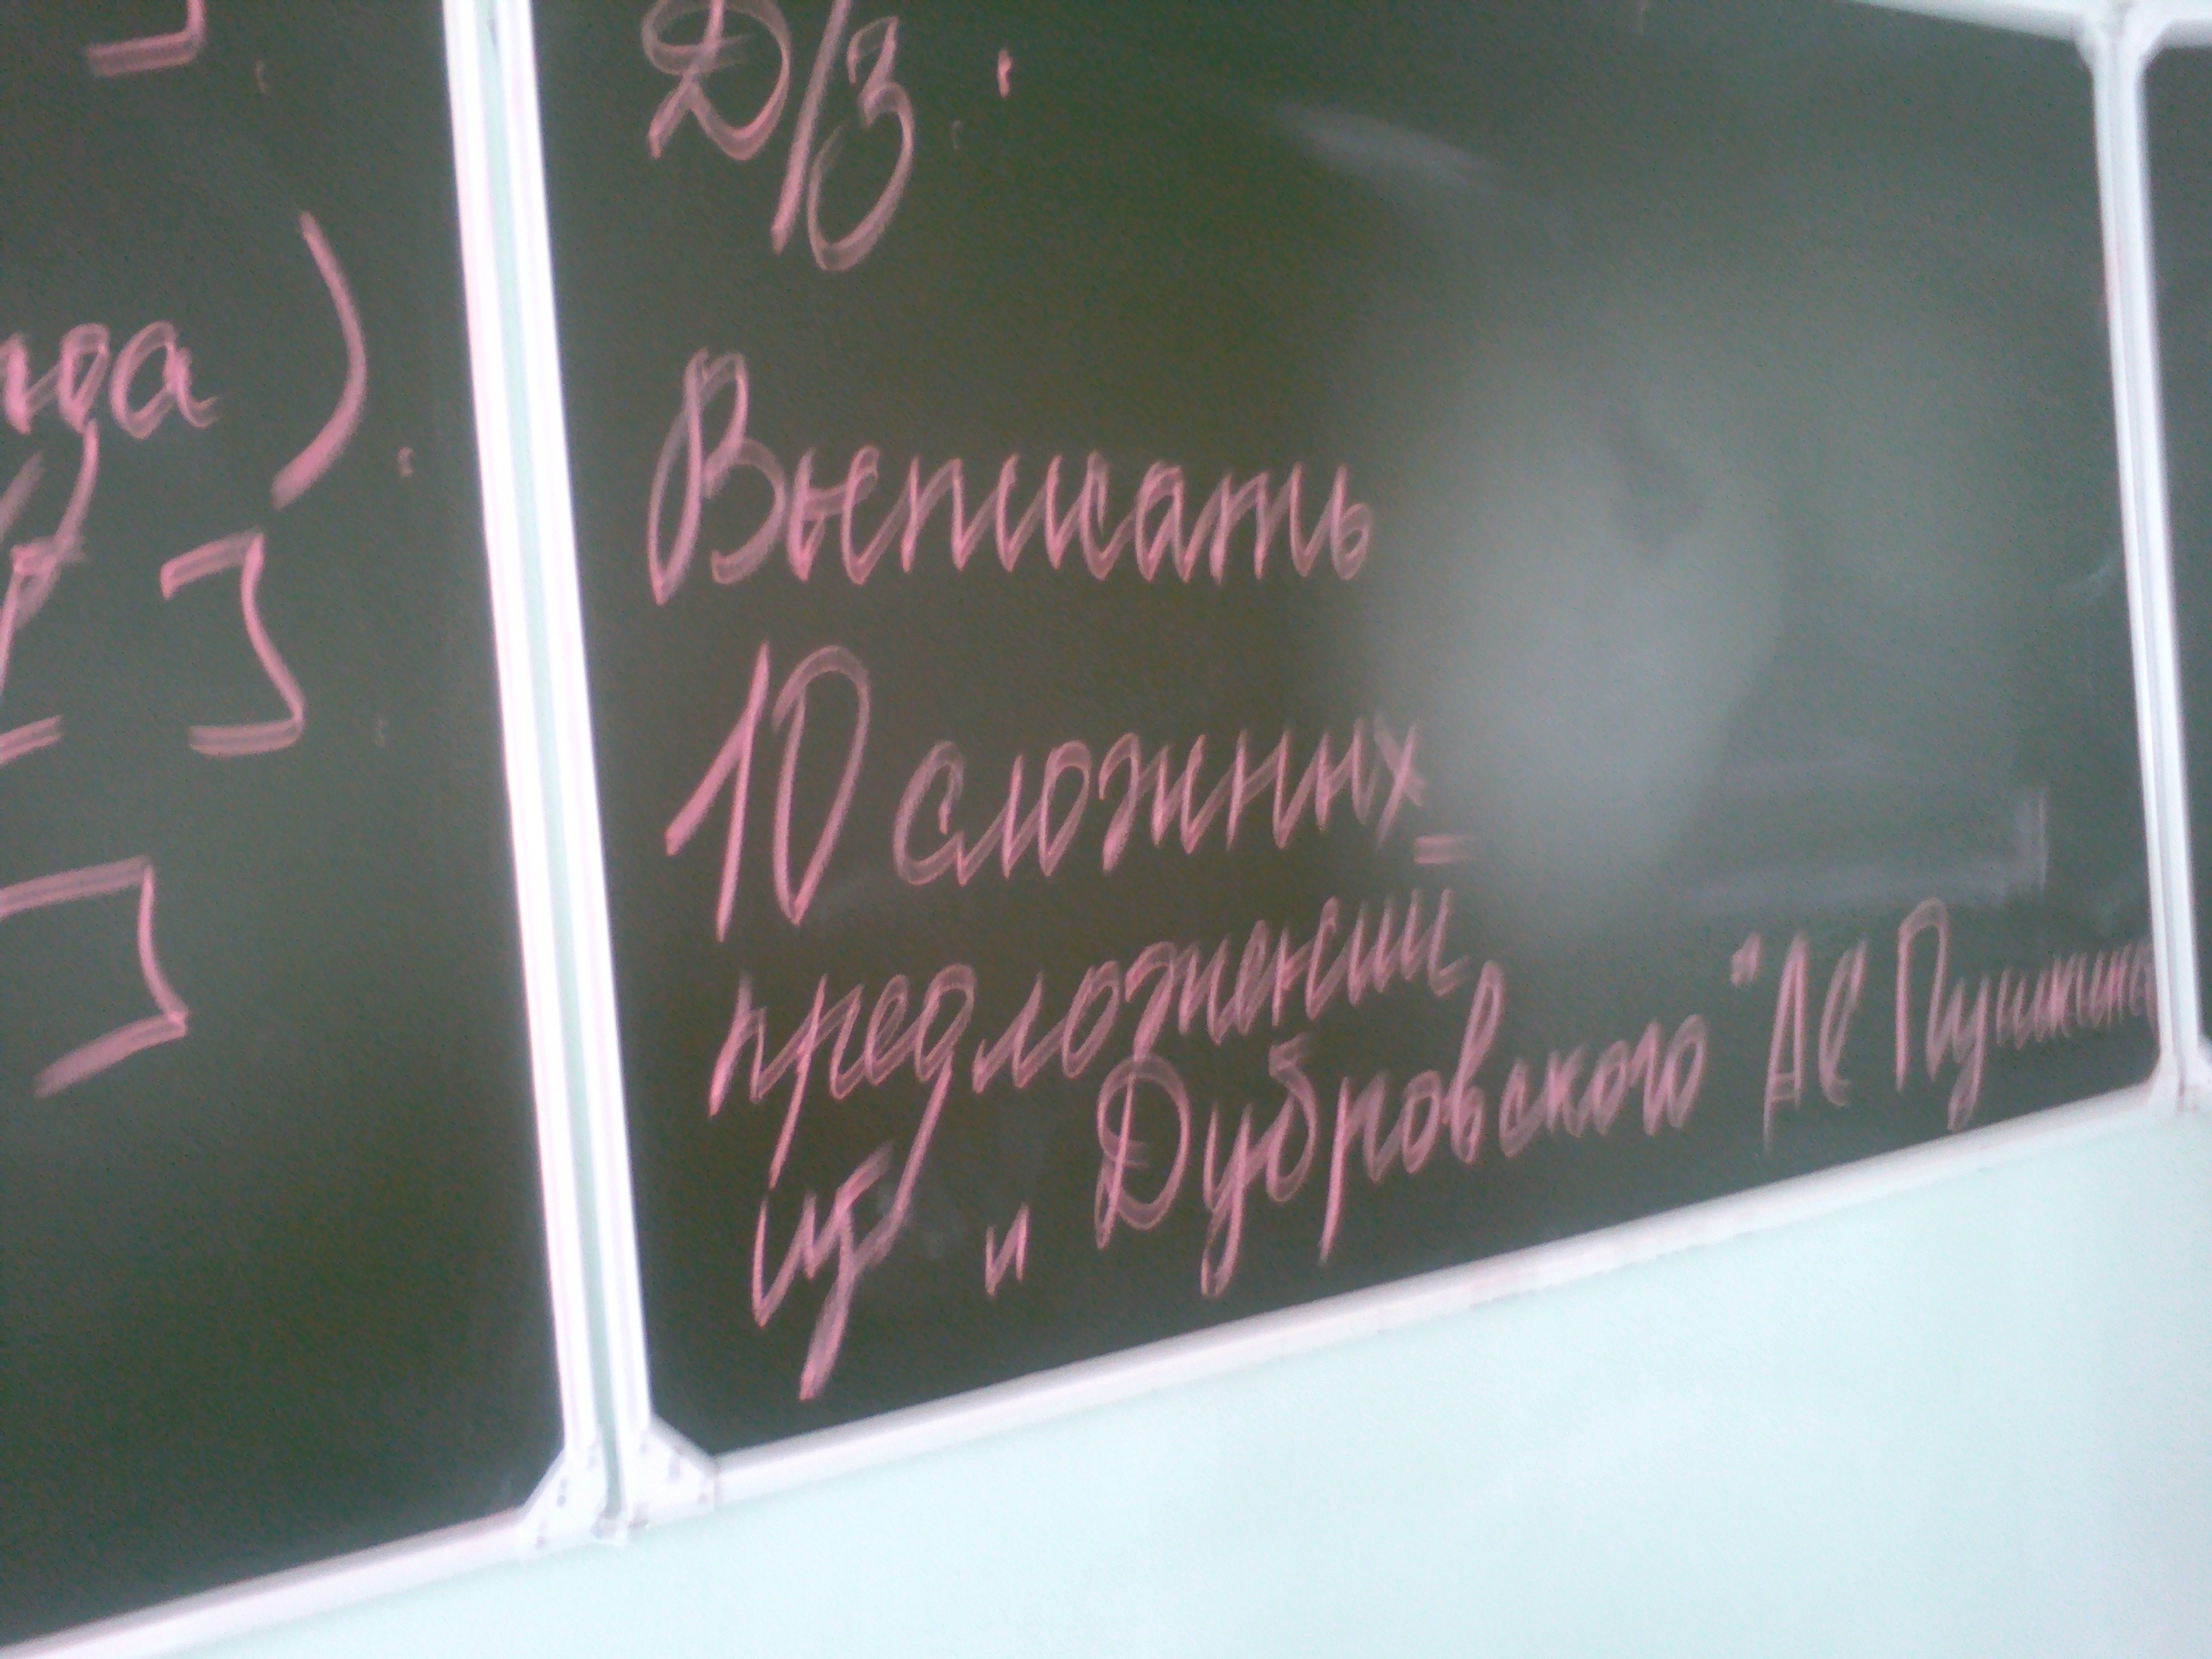 Д/З.
Выписать
10 сложных
предложений
из „Дубровского" АС Пушкина